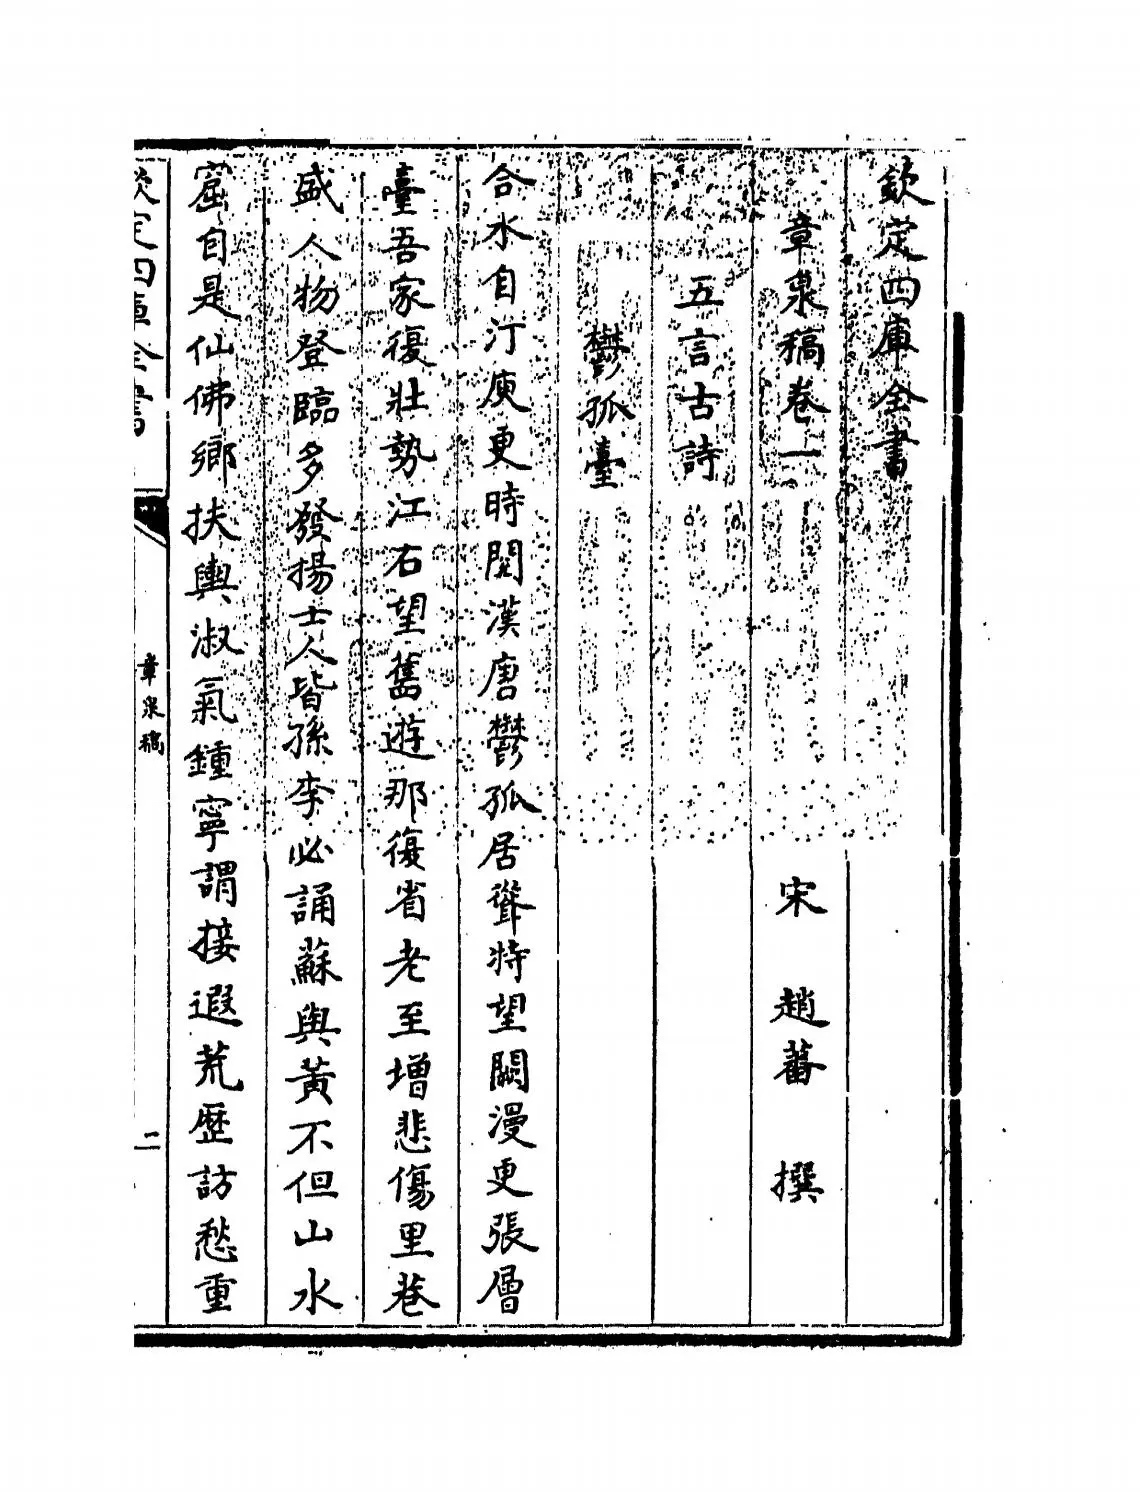 欽定四庫全書
章泉稿卷一
宋 趙蕃 撰
五言古詩
鬱孤臺
合水自汀庾更時閱漢唐鬱孤居聳特望闕漫更張層
臺吾家復壯勢江右望舊遊那復省老至增悲傷里巷
盛人物登臨多發揚士人皆孫李必誦蘇與黃不但山水
窟自是仙佛鄉扶輿淑氣鍾寧謂接遐荒歷訪愁重
欽定四庫全書
章泉稿
二